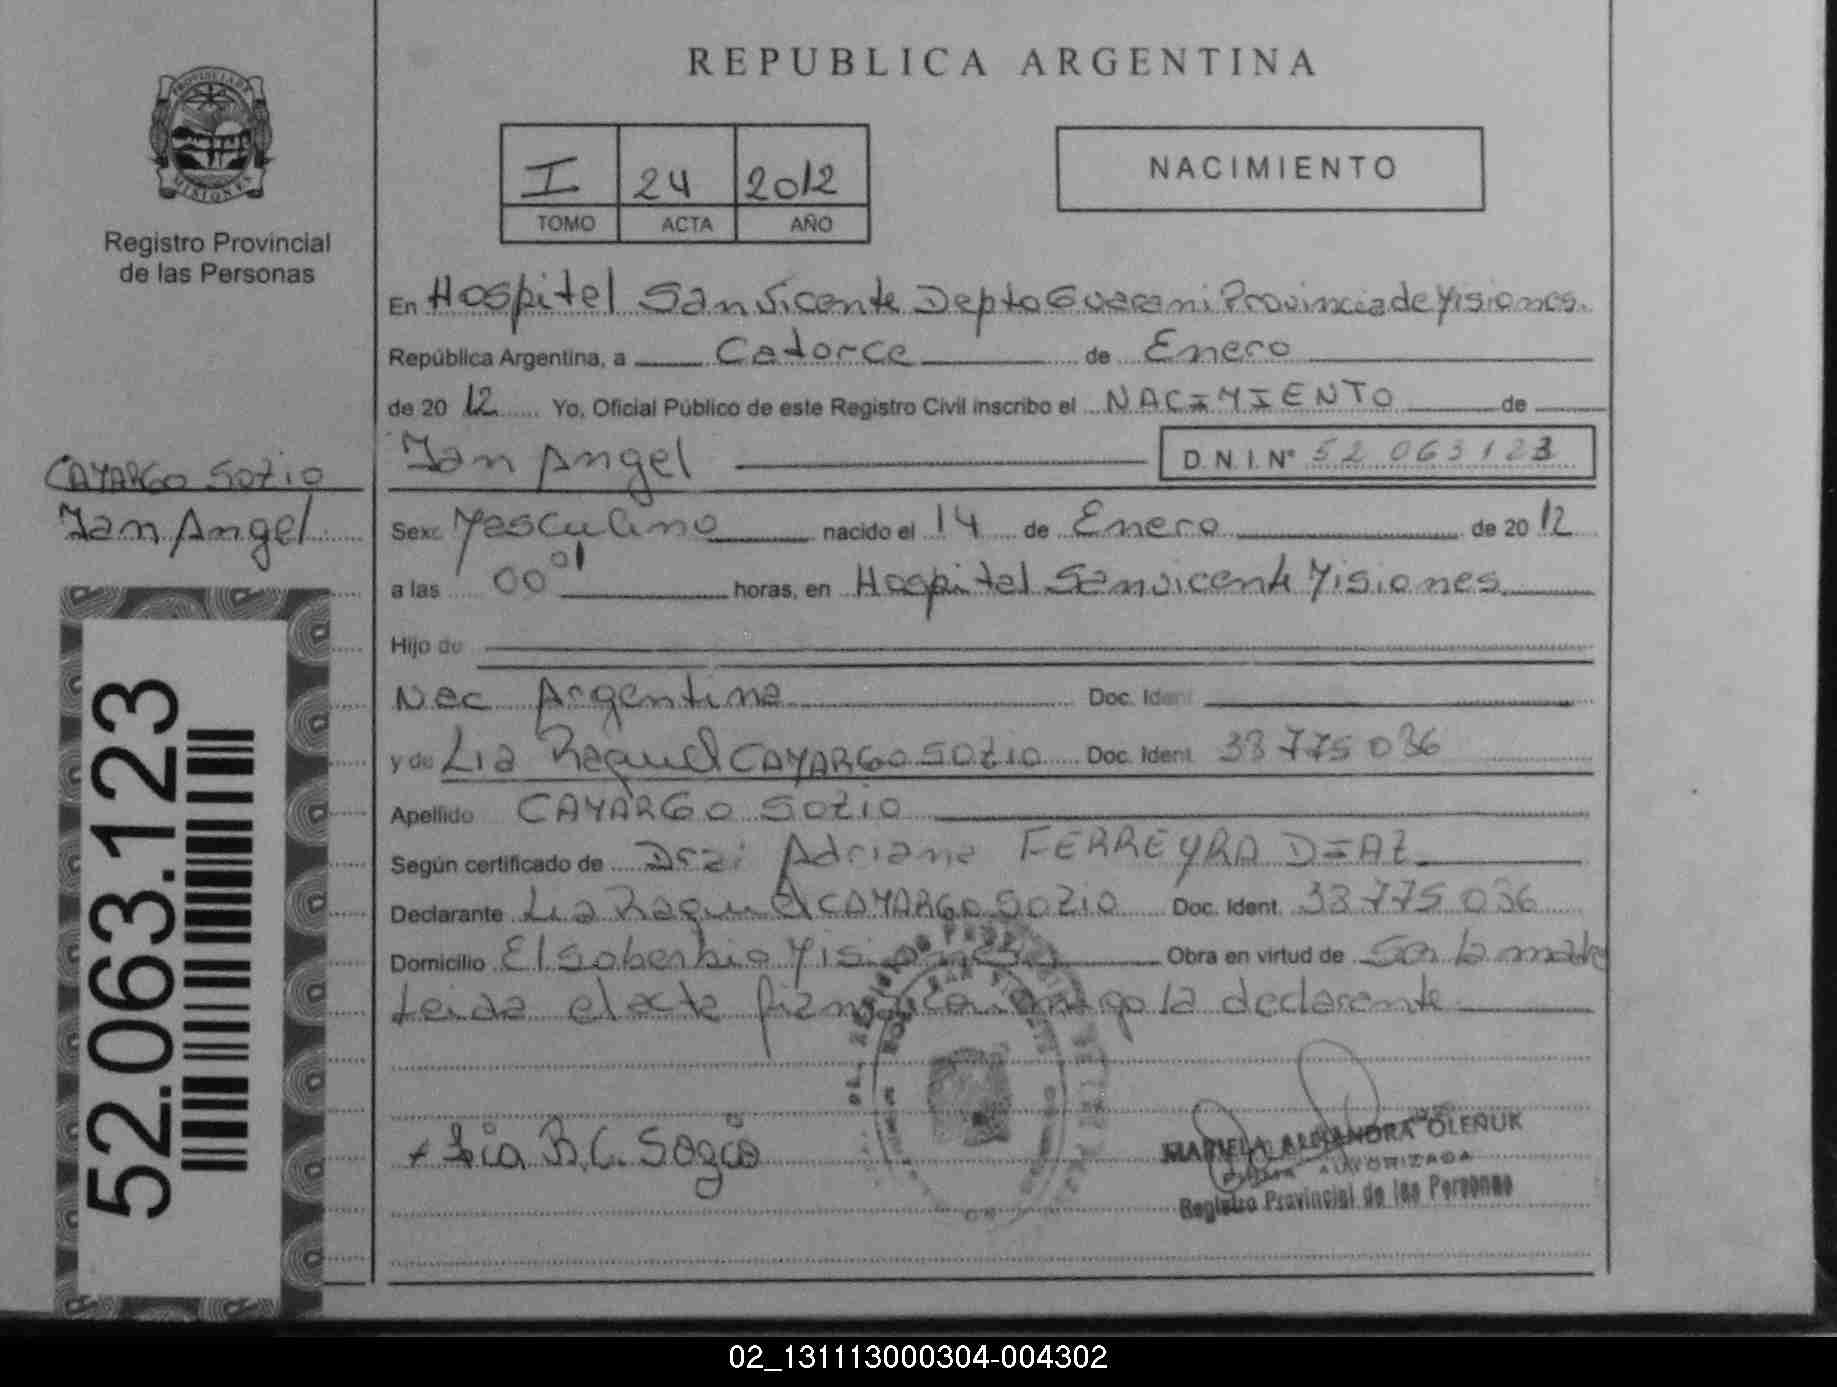 REPUBLICA ARGENTINA
PROVINCIA DE MISIONES
Registro Provincial
de las Personas
I 24 2012
TOMO ACTA AÑO
NACIMIENTO
En Hospital San Vicente Depto Guarani Provincia de Misiones.
República Argentina, a Catorce de Enero
de 2012 Yo, Oficial Público de este Registro Civil inscribo el NACIMIENTO de
CAMARGO SOZIO
Ian Angel
Ian Angel D.N.I.Nº 52 063 123
Sexo Masculino nacido el 14 de Enero de 2012
a las 00 01 horas, en Hospital San Vicente Misiones
Hijo de
Nac Argentina Doc. Ident
y de Lia Raquel CAMARGO SOZIO Doc. Ident 38 775 036
Apellido CAMARGO SOZIO
Según certificado de Adriana FERREYRA DIAZ
Declarante Lia Raquel CAMARGO SOZIO Doc. Ident. 38 775 036
Domicilio El Soberbio Misiones Obra en virtud de Ser la madre
Leida el acta firma conmigo la declarante
Lia R.C. Sozio
MARIELA ALEJANDRA OLENUK
FIRMA AUTORIZADA
Registro Provincial de las Personas
52.063.123
02_131113000304-004302